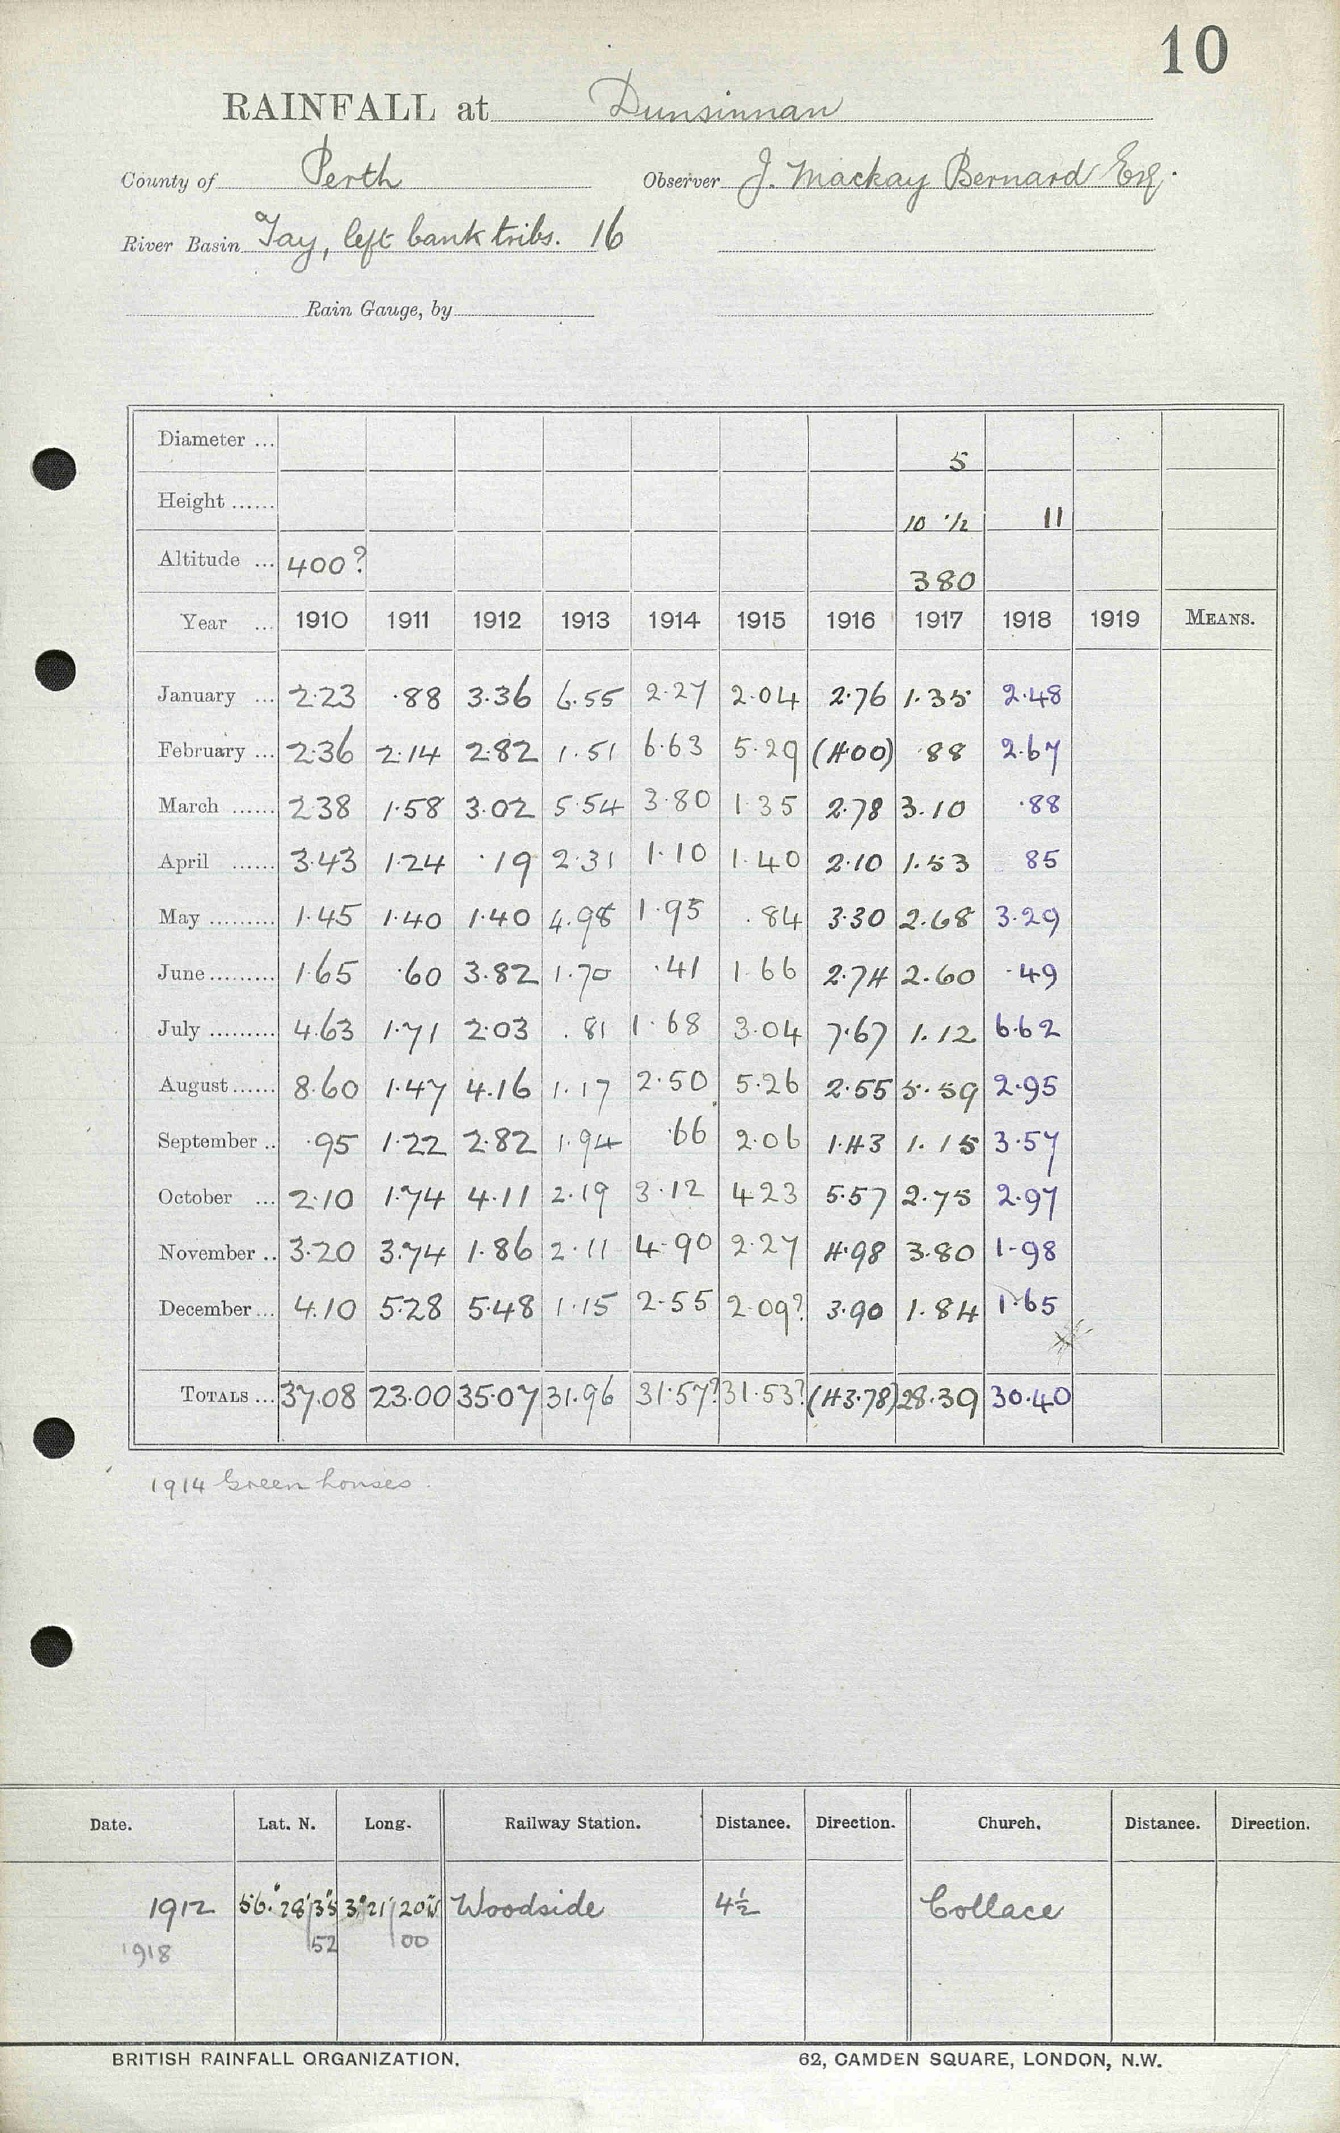 10
RAINFALL at Dunsinnan
County of Perth Observer J. Mackay Bernard Esq.
River Basin Tay, left bank tribs. 16
Rain Gauge, by
Diameter ... 5
Height ...... 10 1/2 11
Altitude ... 400? 380
Year ... 1910 1911 1912 1913 1914 1915 1916 1917 1918 1919 MEANS.
January ... 2.23 .88 3.36 6.55 2.27 2.04 2.76 1.35 2.48
February ... 2.36 2.14 2.82 1.51 6.63 5.29 (4.00) .88 2.67
March ...... 2.38 1.58 3.02 5.54 3.80 1.35 2.78 3.10 .88
April ...... 3.43 1.24 .19 2.31 1.10 1.40 2.10 1.53 85
May ......... 1.45 1.40 1.40 4.98 1.95 .84 3.30 2.68 3.29
June ......... 1.65 .60 3.82 1.70 .41 1.66 2.74 2.60 .49
July ......... 4.63 1.71 2.03 .81 1.68 3.04 7.67 1.12 6.62
August ...... 8.60 1.47 4.16 1.17 2.50 5.26 2.55 5.59 2.95
September .. .95 1.22 2.82 1.94 .66 2.06 1.43 1.15 3.57
October ... 2.10 1.74 4.11 2.19 3.12 4.23 5.57 2.75 2.97
November .. 3.20 3.74 1.86 2.11 4.90 2.27 4.98 3.80 1.98
December ... 4.10 5.28 5.48 1.15 2.55 2.09? 3.90 1.84 1.65
TOTALS ... 37.08 23.00 35.07 31.96 31.57? 31.53? (43.78) 28.39 30.40
1914 Green houses.
Date. Lat. N. Long. Railway Station. Distance. Direction. Church. Distance. Direction.
1912 56.° 28' 35" 3° 21' 20" W Woodside 4½ Collace
1918 52 00
BRITISH RAINFALL ORGANIZATION. 62, CAMDEN SQUARE, LONDON, N.W.